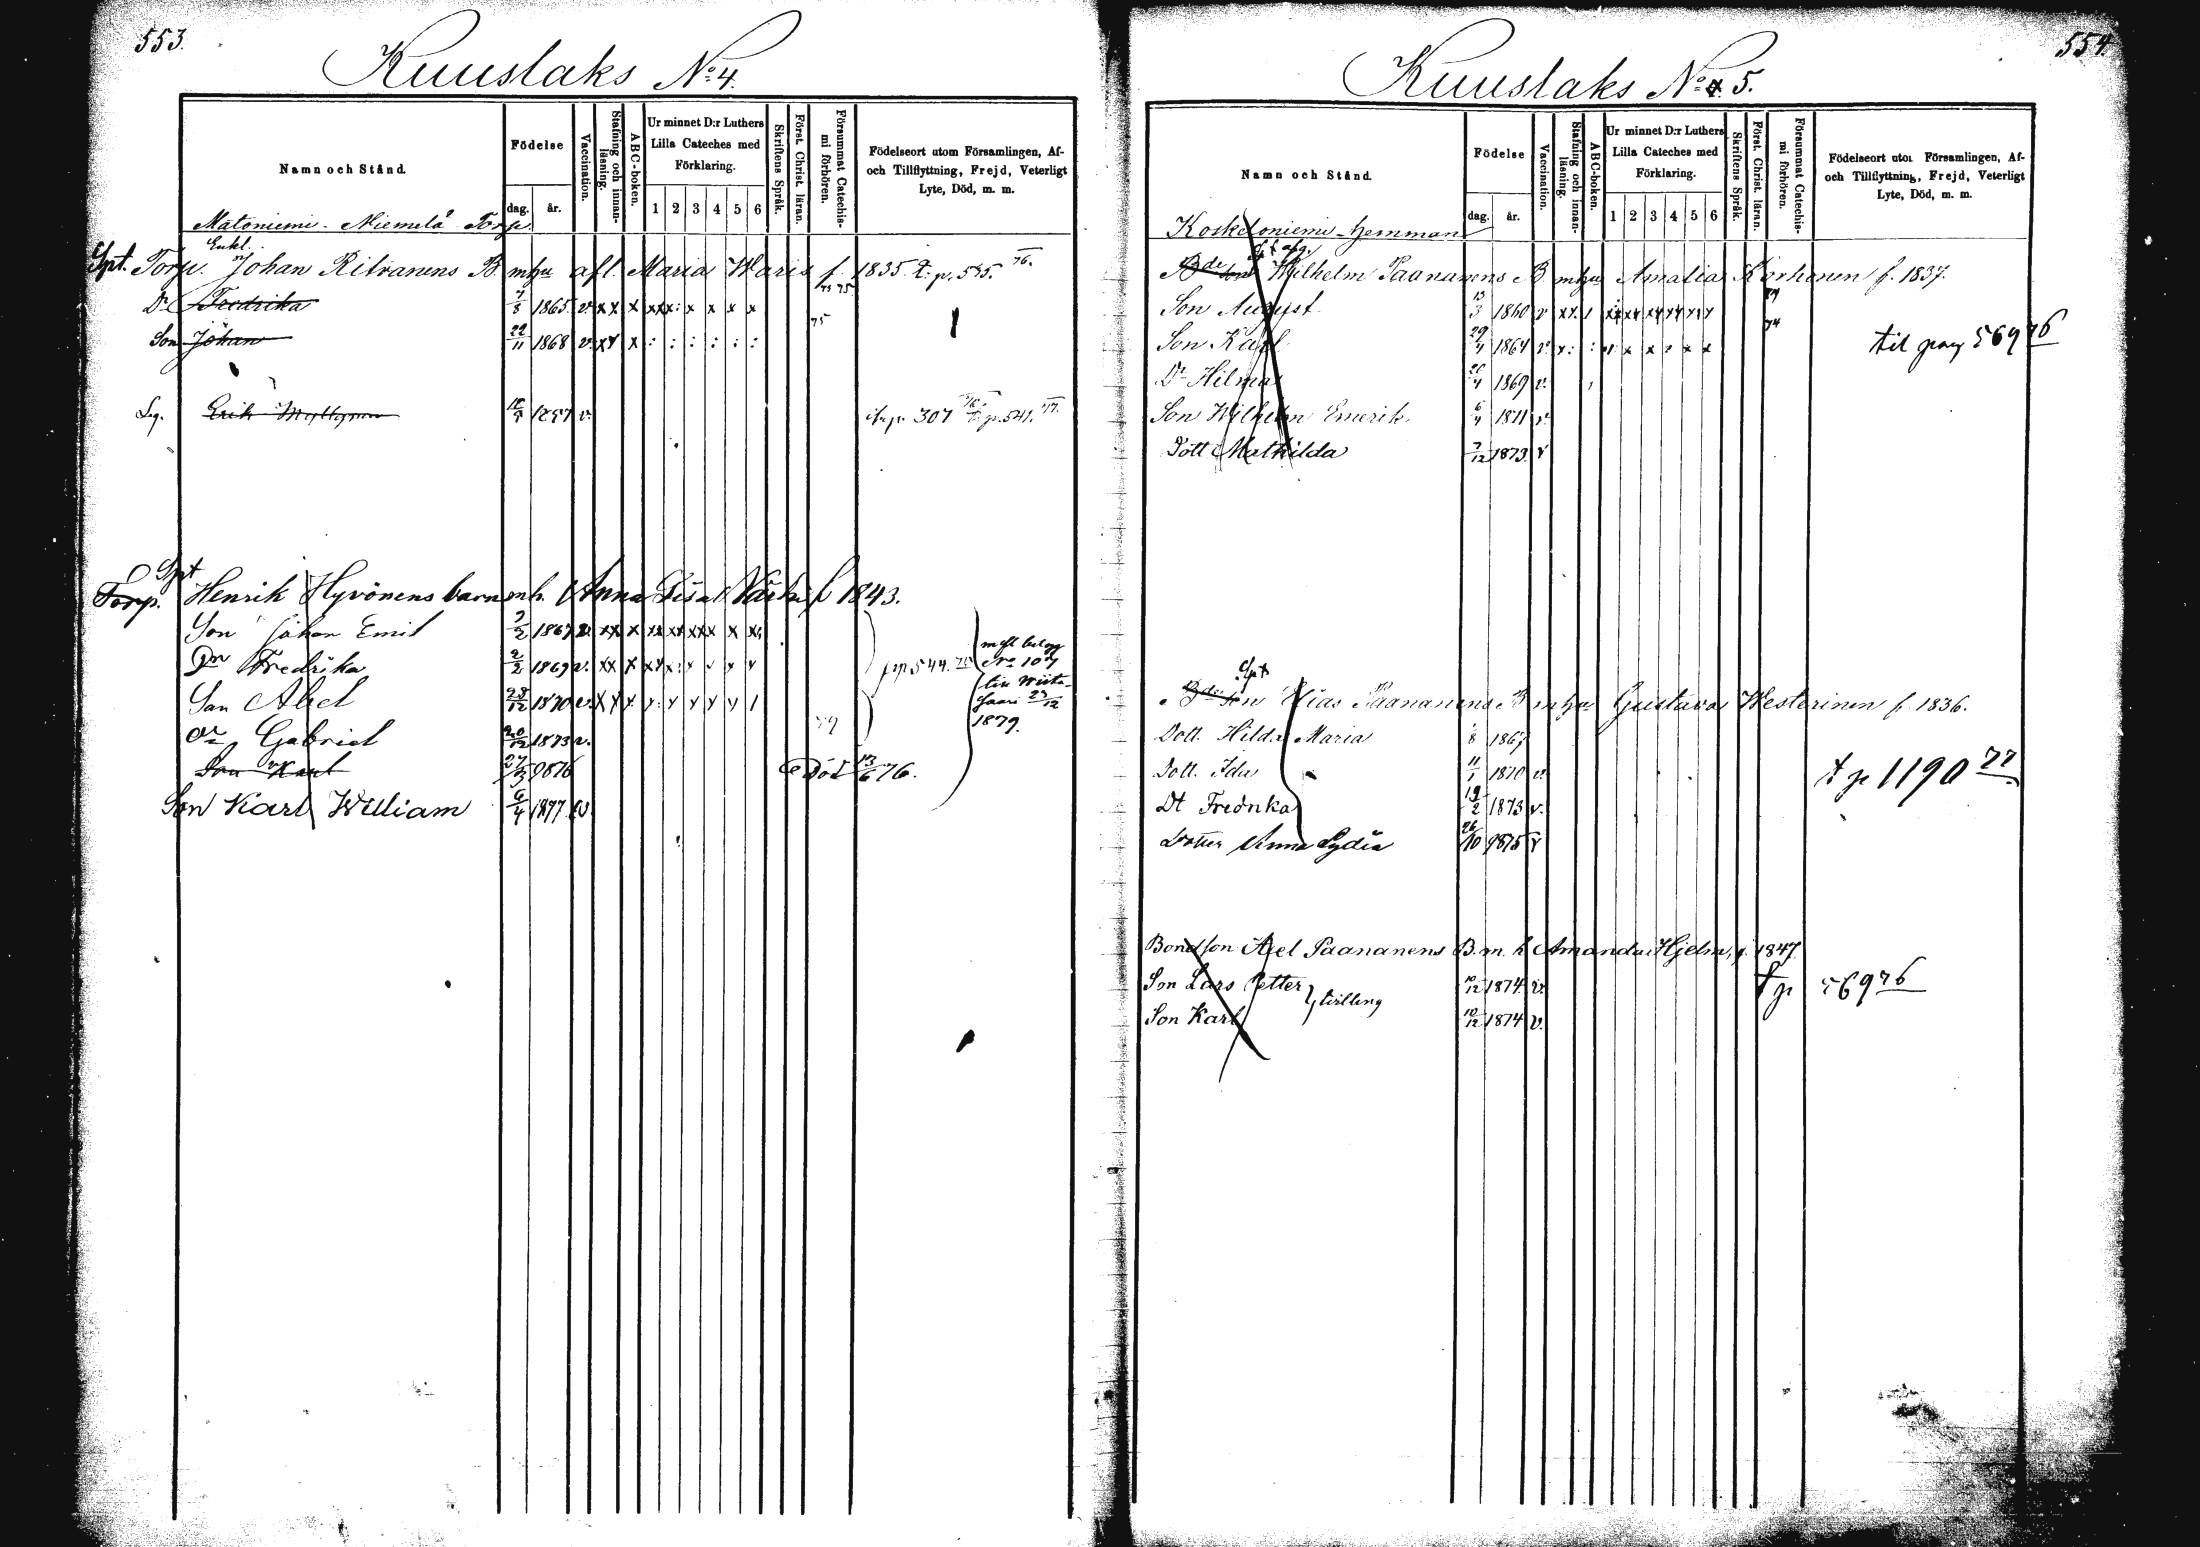 553.
Kuuslaks No 4.
Namn och Stånd.
Födelse
dag.
år.
Vaccination.
Stafning och innan-läsning.
ABC-boken.
Ur minnet D:r Luthers
Lilla Cateches med
Förklaring.
1 2 3 4 5 6
Skriftens Språk.
Först. Christ. läran.
Försummat Catechis-mi förhören.
Födelseort utom Församlingen, Af-
och Tillflyttning, Frejd, Veterligt
Lyte, Död, m. m.
Matoniemi - Niemelä Torp
Enkl.
Torp. Johan Ritvanens B. m hu afl. Maria Waris f. 1835. T. p. 535. 76.
Dr Fredrika 7/8 1865 v. x x x x x x: x x x x
Son Johan 22/11 1868 v. x x x : : : : : : 75
Erik 1857 v. 307 p. 541. 77.
Spt
Torp. Henrik Hyvönens barn m h. Anna Lisa f 1843.
Son Johan Emil 7/2 1867 v. xx x xx xx xxx x x
Dr Fredrika 2/2 1869 v. xx x p 544.
Son Abel 28/12 1870 v.
Dr Gabriel 20/12 1873 v. 79
m fl. betyg
No 107
1879.
Son Karl 27/3 1876 Död 13/6 76.
Son Karl William 6/4 1877 v.
554
Kuuslaks No 5.
Namn och Stånd.
Födelse
dag.
år.
Vaccination.
Stafning och innan-läsning.
ABC-boken.
Ur minnet D:r Luthers
Lilla Cateches med
Förklaring.
1 2 3 4 5 6
Skriftens Språk.
Först. Christ. läran.
Försummat Catechis-mi förhören.
Födelseort utom Församlingen, Af-
och Tillflyttning, Frejd, Veterligt
Lyte, Död, m. m.
Koskeloniemi - hemman
Bde son Wilhelm Paananens B m hu Amalia Korhonen f. 1837.
Son August 13/3 1860 v 74
Son Karl 29/4 1864 v. 74 til pag 569 76
Dr Hilma 20/4 1869 v.
Son Wilhelm Emerik. 6/4 1871 v.
Dott Mathilda 7/12 1873 v
Spt
Bde son Elias Paananens B m hu Gustava Westerinen f. 1836.
Dott. Hilda Maria 1867
Dott. Ida 11/1 1870 v. t p 1190 77
Dt Fredrika 19/2 1873 v.
Dotter Anna Lydia 26/10 1875 v
Bondson Axel Paananens B. m. h Amanda Hjelm, f. 1847
Son Lars Petter } tvilling 10/12 1874 v. t p 569 76
Son Karl 10/12 1874 v.